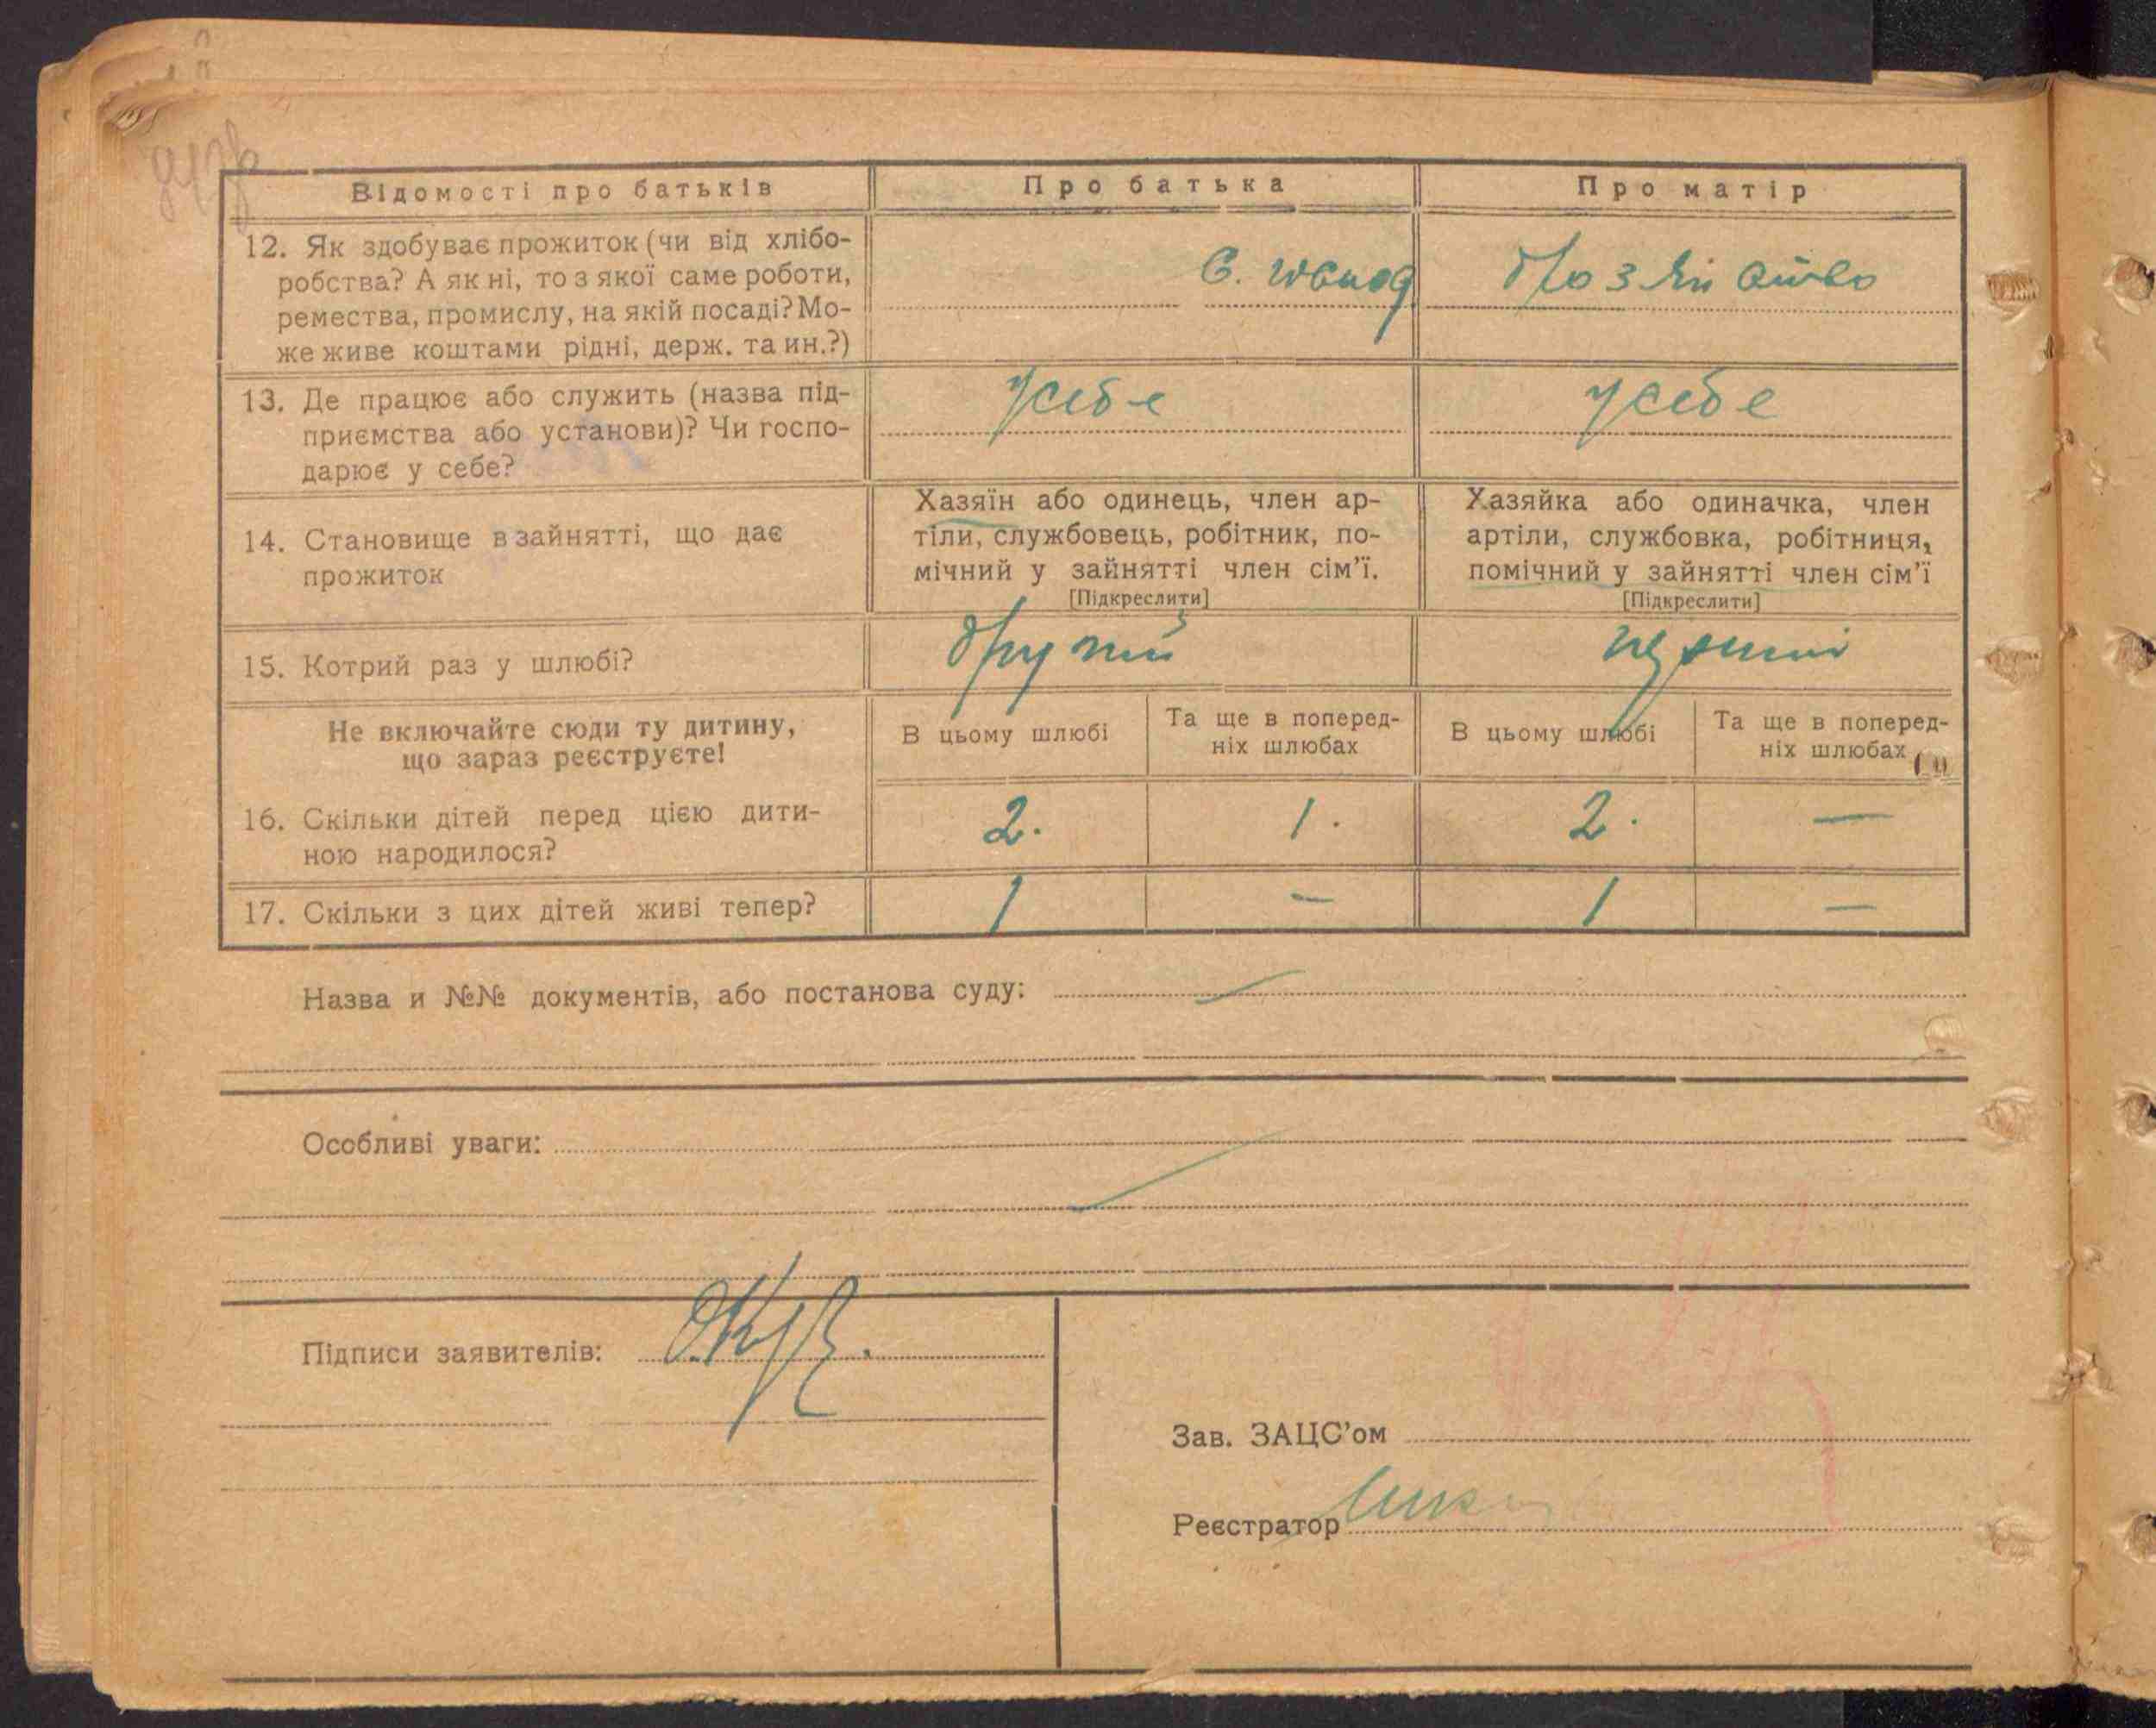 Відомості про батьків
Про батька
Про матір
12. Як здобуває прожиток (чи від хлібо-
робства? А як ні, то з якої саме роботи,
ремества, промислу, на якій посаді? Мо-
же живе коштами рідні, держ. та ин.?)
13. Де працює або служить (назва під-
приємства або установи)? Чи госпо-
дарює у себе?
у себе
у себе
14. Становище в зайнятті, що дає
прожиток
Хазяїн або одинець, член ар-
тіли, службовець, робітник, по-
мічний у зайнятті член сім'ї.
[Підкреслити]
Хазяйка або одиначка, член
артіли, службовка, робітниця,
помічний у зайнятті член сім'ї
[Підкреслити]
15. Котрий раз у шлюбі?
другий
перший
Не включайте сюди ту дитину,
що зараз реєструєте!
В цьому шлюбі
Та ще в поперед-
ніх шлюбах
В цьому шлюбі
Та ще в поперед-
ніх шлюбах
16. Скільки дітей перед цією дити-
ною народилося?
2. 1. 2. —
17. Скільки з цих дітей живі тепер?
1 — 1 —
Назва и №№ документів, або постанова суду:
Особливі уваги:
Підписи заявителів:
Зав. ЗАЦС'ом
Реєстратор